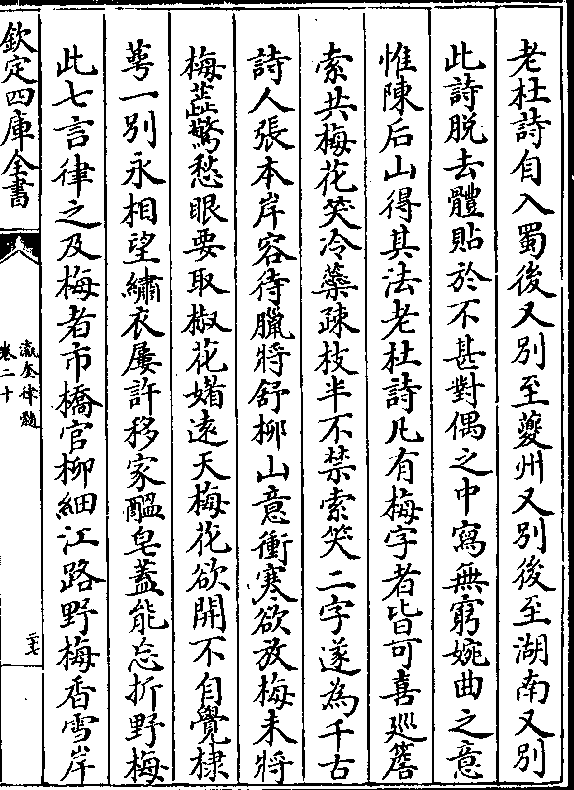 老杜詩自入蜀後又別至夔州又別後至湖南又別
此詩脫去體貼於不甚對偶之中寫無窮婉曲之意
惟陳后山得其法老杜詩凡有梅字者皆可喜巡簷
索共梅花笑冷蘂疎枝半不禁索笑二字遂為千古
詩人張本岸容待臘將舒柳山意衝寒欲放梅未將
梅蘂驚愁眼要取椒花媚遠天梅花欲開不自覺棣
萼一別永相望繡衣屢許移家醖皂蓋能忘折野梅
此七言律之及梅者市橋官柳細江路野梅香雪岸
欽定四庫全書
瀛奎律髓
卷二十